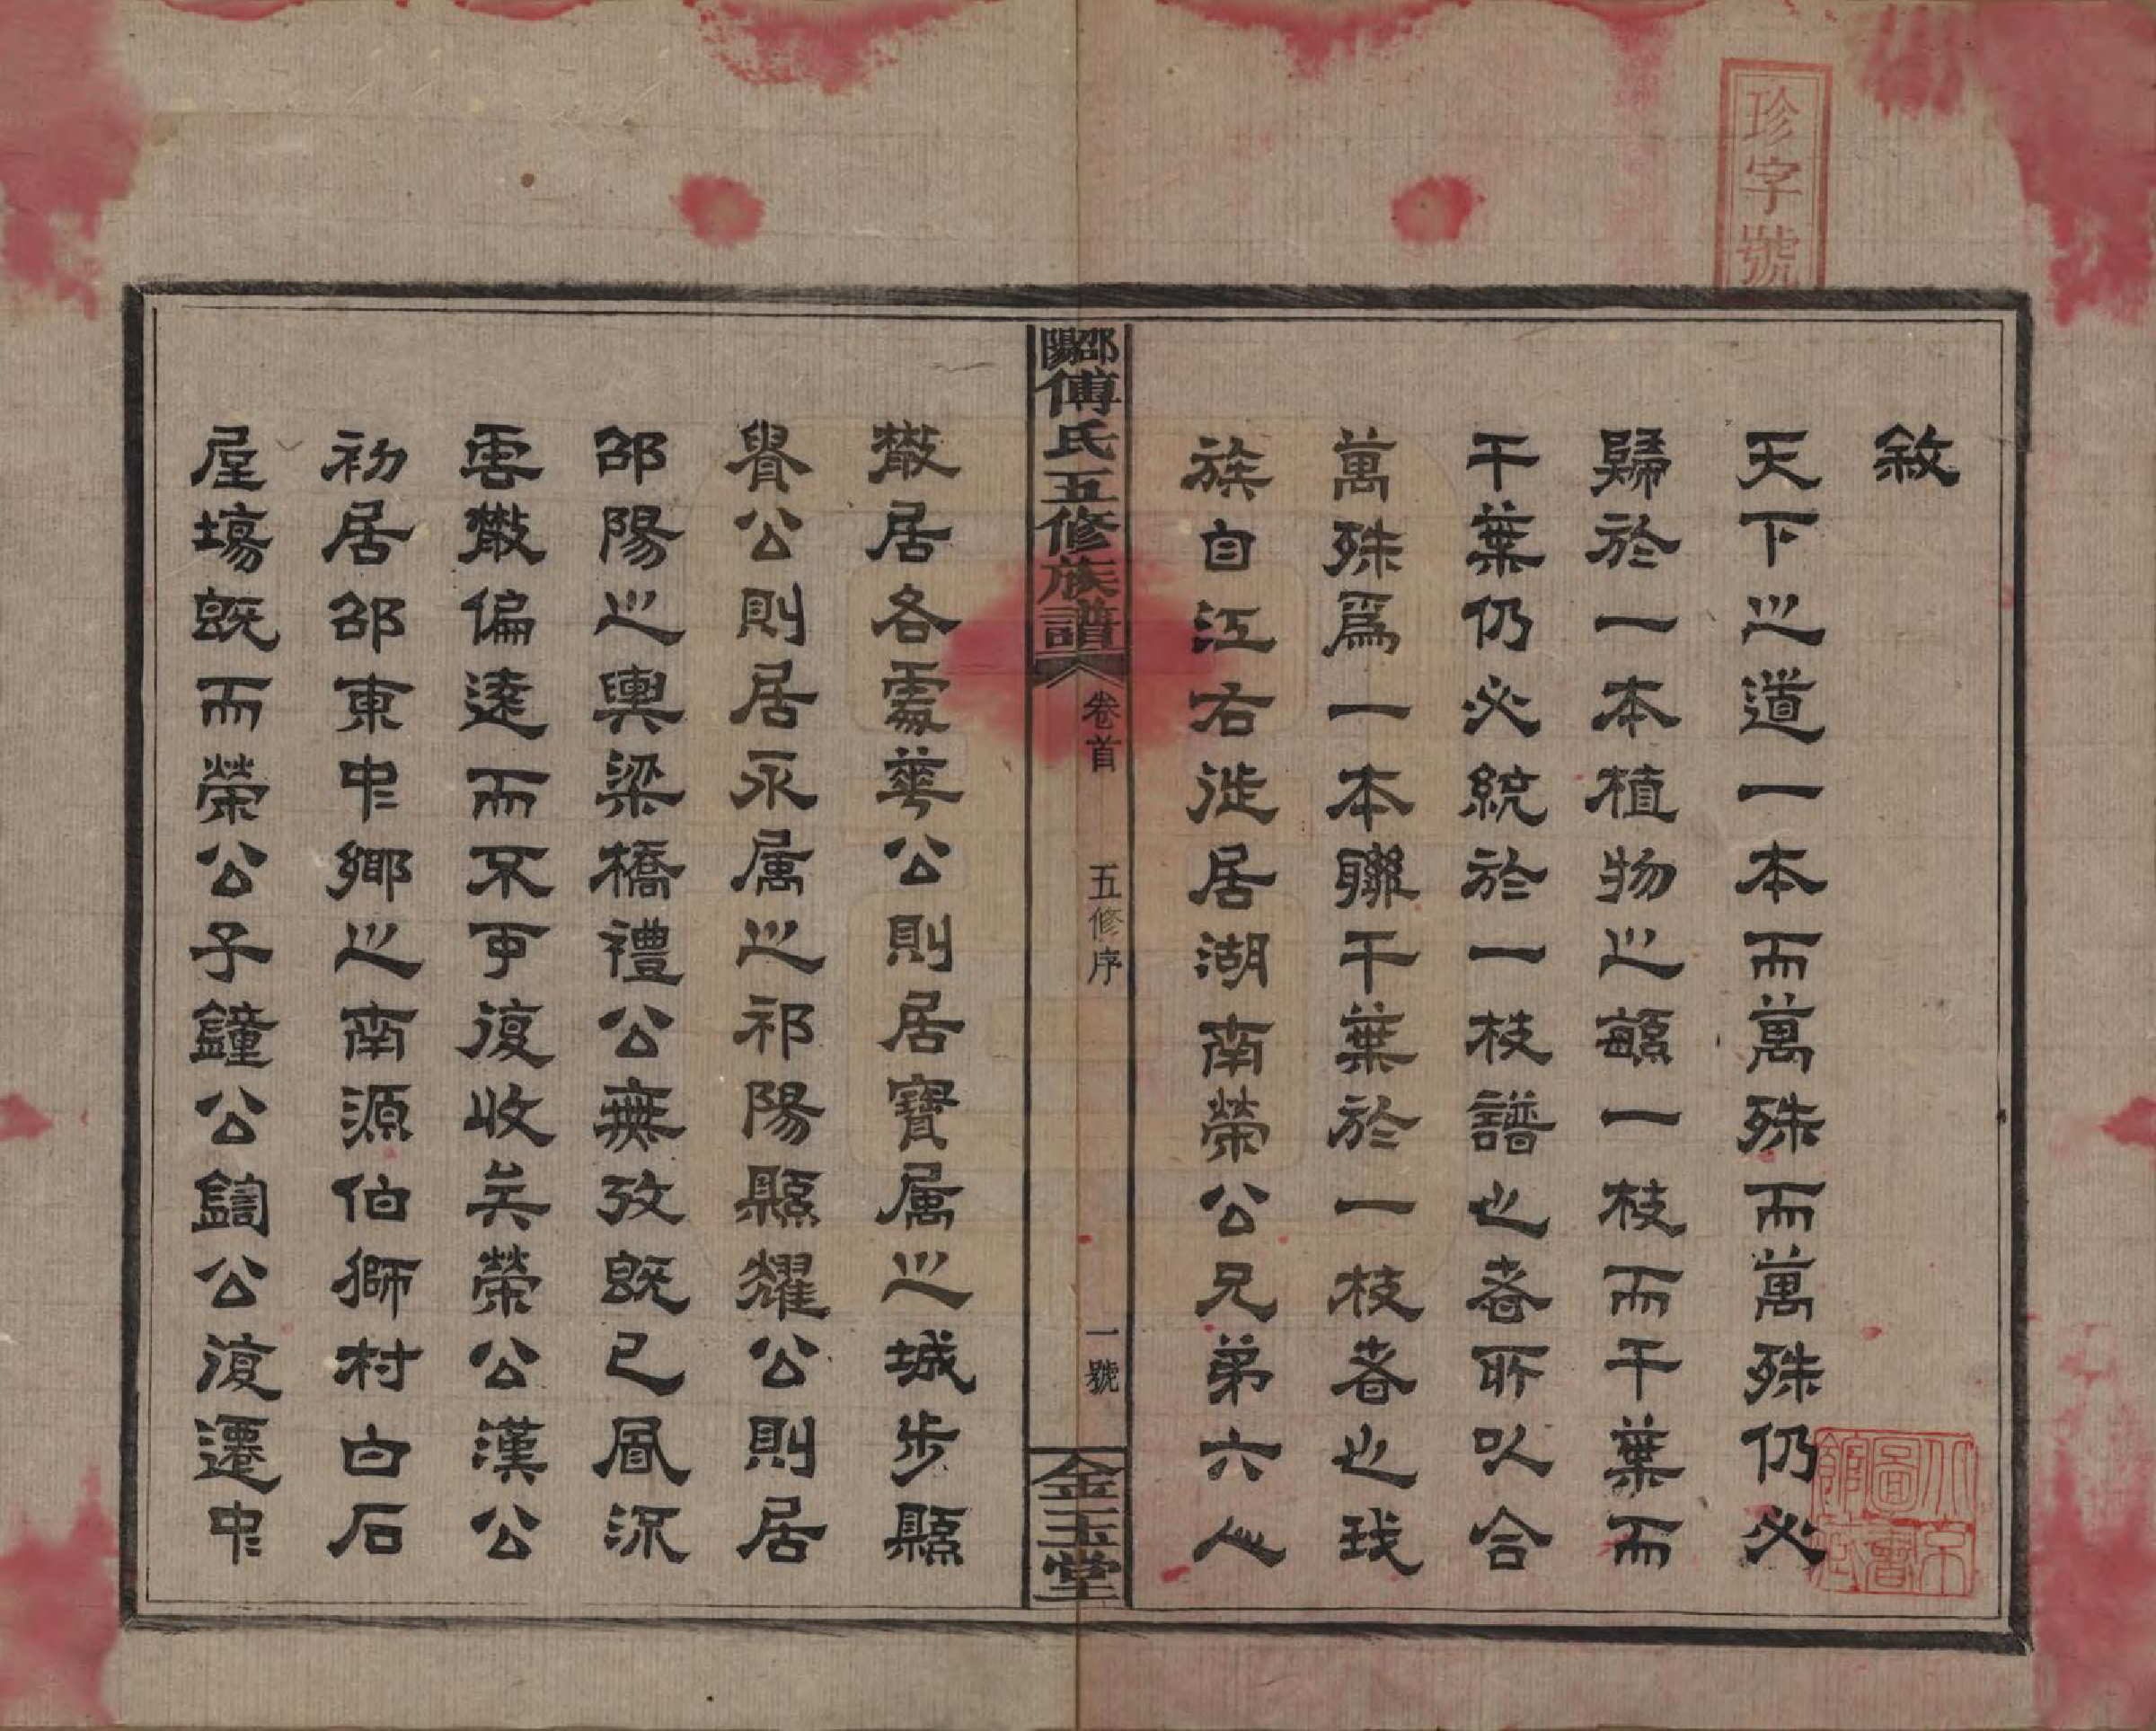 珍字號
敘
天下之道一本而萬殊而萬殊仍必
歸於一本植物之蘖一枝而千葉而
千葉仍必統於一枝譜也者所以合
萬殊爲一本聯千葉於一枝者也我
族自江右徙居湖南榮公兄弟六人
邵陽傅氏五修族譜
卷首
五修序
一號
金玉堂
散居各處華公則居寶屬之城步縣
貴公則居永屬之祁陽縣耀公則居
邵陽之輿梁橋禮公無攷旣已風流
雲散偏遠而不可復收矣榮公漢公
初居邵東中鄉之南源伯獅村白石
屋塲旣而榮公子鐘公鑄公復遷中
北京圖書館藏